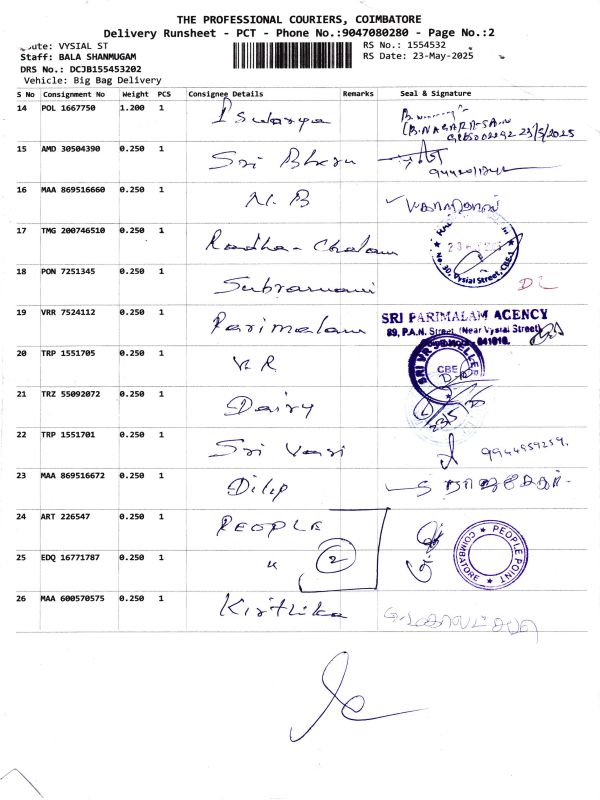 THE PROFESSIONAL COURIERS, COIMBATORE
Delivery Runsheet - PCT - Phone No.:9047080280 - Page No.:2
Route: VYSIAL ST
RS No.: 1554532
Staff: BALA SHANMUGAM
RS Date: 23-May-2025
DRS No.: DCJB155453202
Vehicle: Big Bag Delivery
S No Consignment No Weight PCS Consignee Details Remarks Seal & Signature
14 POL 1667750 1.200 1 Iswarya
23/5/2025
15 AMD 30504390 0.250 1 Sri
16 MAA 869516660 0.250 1 N. B
17 TMG 200746510 0.250 1 Radha - Chalam
No. 30, Vysial Street, CBE-1
18 PON 7251345 0.250 1 Subramani
19 VRR 7524112 0.250 1 Parimalam
SRI PARIMALAM AGENCY
89, P.A.N. Street, (Near Vysial Street)
20 TRP 1551705 0.250 1 V. R
CBE
21 TRZ 55092072 0.250 1 Dairy
23/5
22 TRP 1551701 0.250 1 Sri Vasi 9944959259.
23 MAA 869516672 0.250 1 Dilip
24 ART 226547 0.250 1 PEOPLE
PEOPLE POINT COIMBATORE
25 EDQ 16771787 0.250 1 " 2
26 MAA 600570575 0.250 1 Kirthika